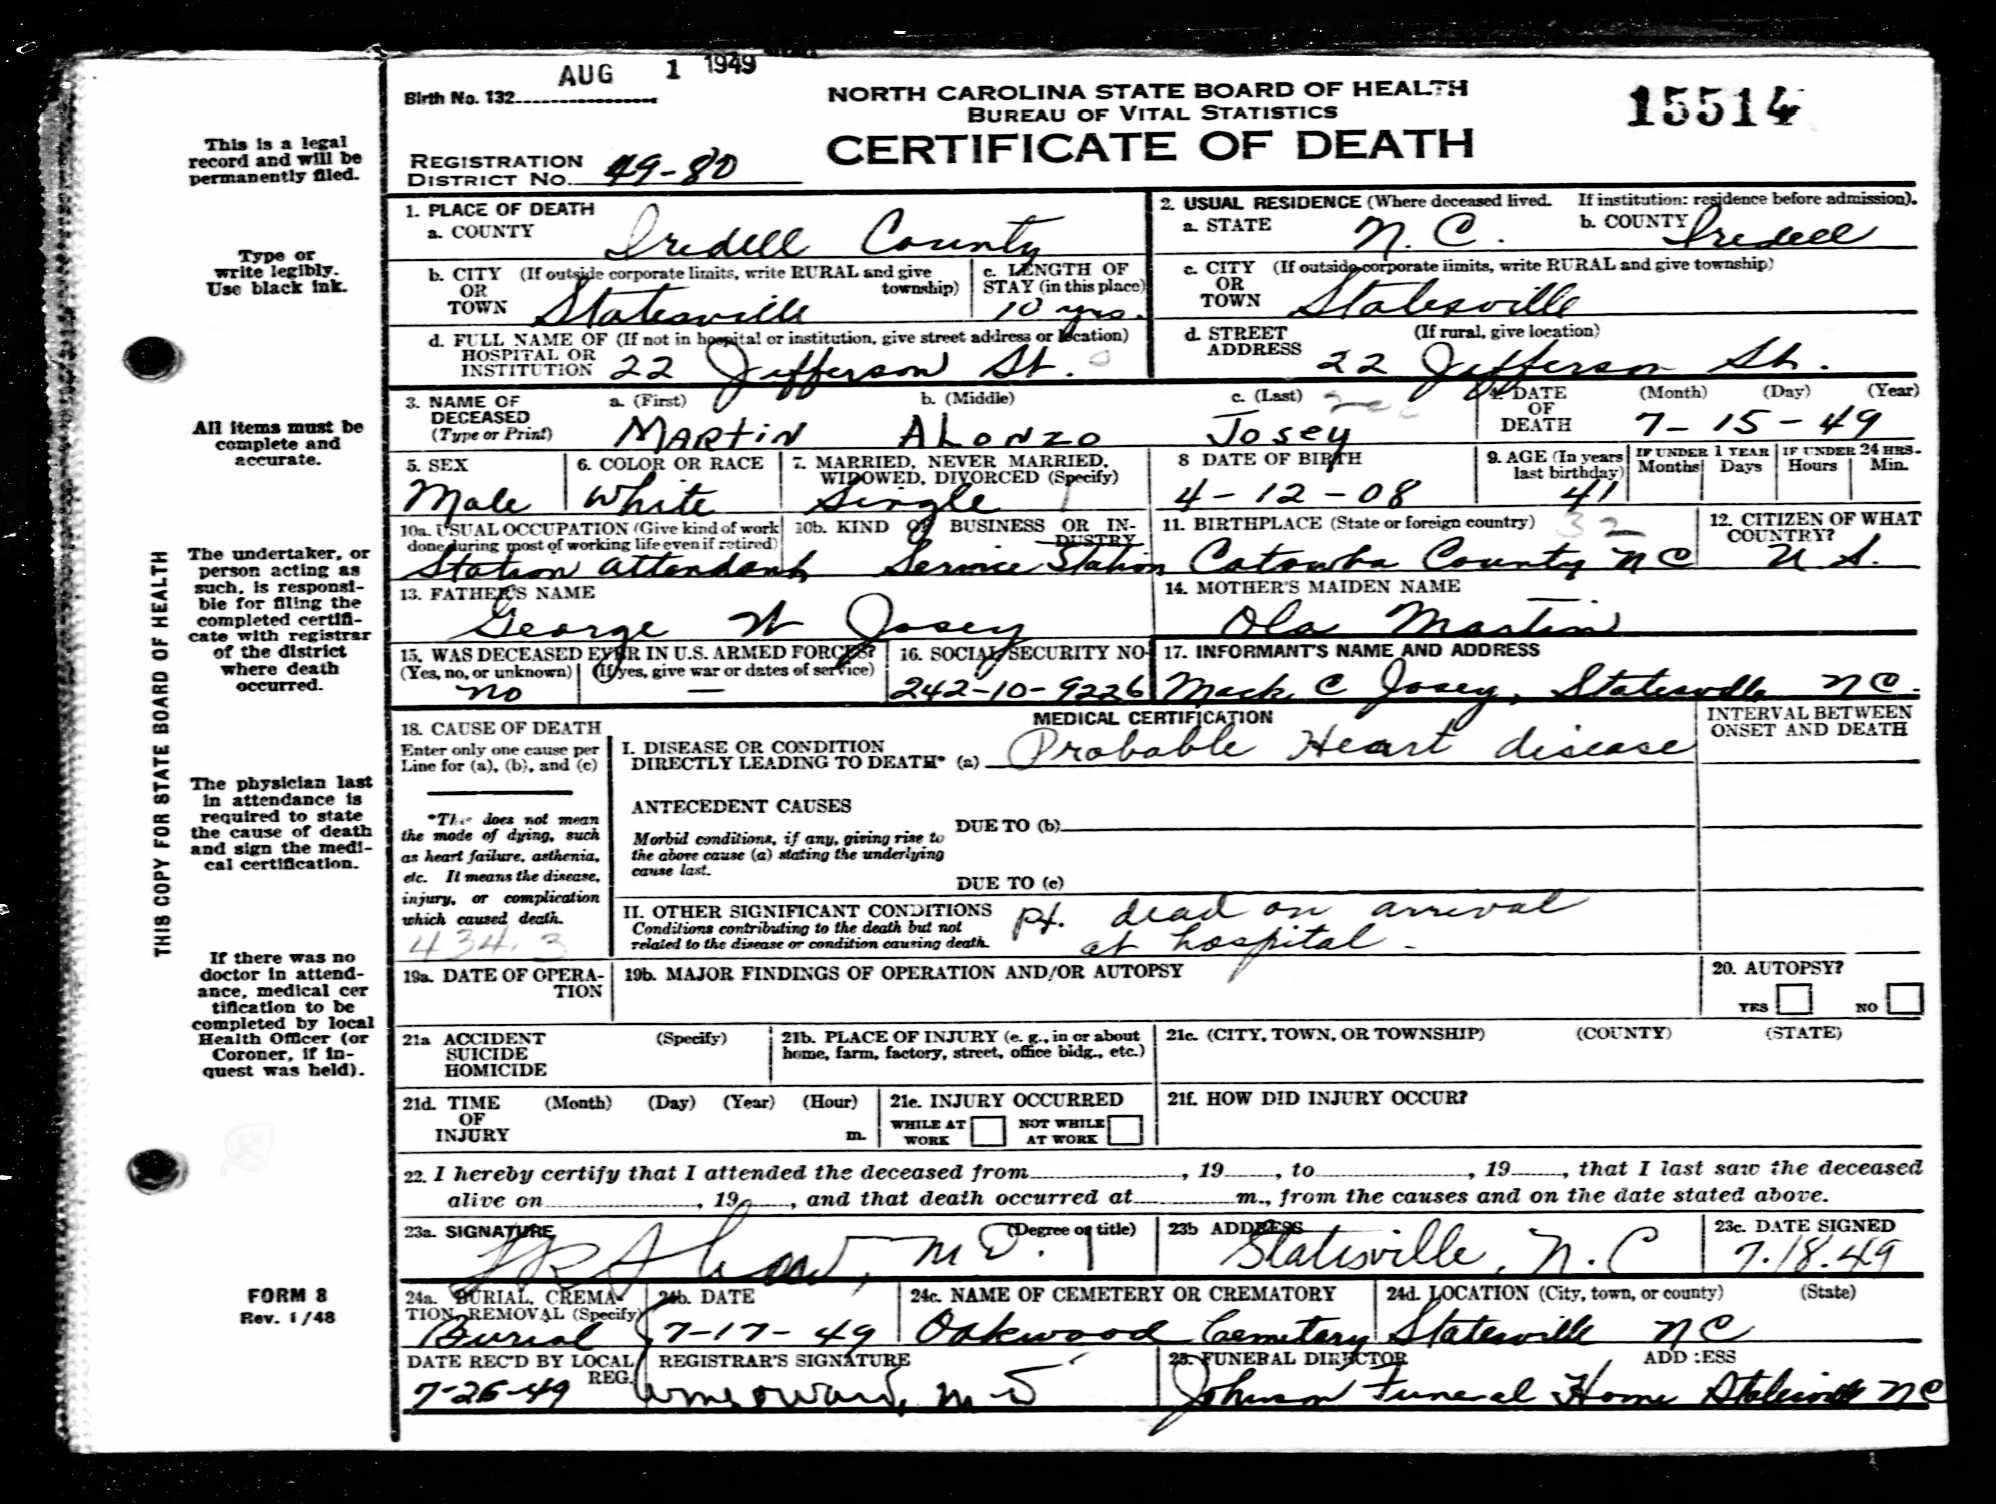 AUG 1 1949
Birth No. 132
NORTH CAROLINA STATE BOARD OF HEALTH
BUREAU OF VITAL STATISTICS
CERTIFICATE OF DEATH
15514
REGISTRATION
DISTRICT No. 49-80
This is a legal
record and will be
permanently filed.
Type or
write legibly.
Use black ink.
All items must be
complete and
accurate.
The undertaker, or
person acting as
such, is responsi-
ble for filing the
completed certifi-
cate with registrar
of the district
where death
occurred.
The physician last
in attendance is
required to state
the cause of death
and sign the medi-
cal certification.
If there was no
doctor in attend-
ance, medical cer
tification to be
completed by local
Health Officer (or
Coroner, if in-
quest was held).
FORM 8
Rev. 1/48
THIS COPY FOR STATE BOARD OF HEALTH
1. PLACE OF DEATH
a. COUNTY Iredell County
b. CITY (If outside corporate limits, write RURAL and give
OR township)
TOWN Statesville
c. LENGTH OF
STAY (in this place)
10 yrs.
d. FULL NAME OF (If not in hospital or institution, give street address or location)
HOSPITAL OR
INSTITUTION 22 Jefferson St.
2. USUAL RESIDENCE (Where deceased lived. If institution: residence before admission).
a. STATE N.C. b. COUNTY Iredell
c. CITY (If outside corporate limits, write RURAL and give township)
OR
TOWN Statesville
d. STREET (If rural, give location)
ADDRESS 22 Jefferson St.
3. NAME OF a. (First) b. (Middle) c. (Last)
DECEASED
(Type or Print) Martin Alonzo Josey
4. DATE (Month) (Day) (Year)
OF
DEATH 7-15-49
5. SEX
Male
6. COLOR OR RACE
White
7. MARRIED, NEVER MARRIED,
WIDOWED, DIVORCED (Specify)
Single
8 DATE OF BIRTH
4-12-08
9. AGE (In years
last birthday)
41
IF UNDER 1 YEAR
Months Days
IF UNDER 24 HRS.
Hours Min.
10a. USUAL OCCUPATION (Give kind of work
done during most of working life even if retired)
Station attendant
10b. KIND OF BUSINESS OR IN-
DUSTRY
Service Station
11. BIRTHPLACE (State or foreign country) 32
Catawba County NC
12. CITIZEN OF WHAT
COUNTRY?
U.S.
13. FATHER'S NAME
George W Josey
14. MOTHER'S MAIDEN NAME
Ola Martin
15. WAS DECEASED EVER IN U.S. ARMED FORCES?
(Yes, no, or unknown) (If yes, give war or dates of service)
no —
16. SOCIAL SECURITY NO
242-10-9226
17. INFORMANT'S NAME AND ADDRESS
Mack C Josey, Statesville NC.
18. CAUSE OF DEATH
Enter only one cause per
Line for (a), (b), and (c)
*This does not mean
the mode of dying, such
as heart failure, asthenia,
etc. It means the disease,
injury, or complication
which caused death.
434.3
MEDICAL CERTIFICATION
I. DISEASE OR CONDITION
DIRECTLY LEADING TO DEATH* (a) Probable Heart disease
ANTECEDENT CAUSES
Morbid conditions, if any, giving rise to
the above cause (a) stating the underlying
cause last.
DUE TO (b)
DUE TO (c)
II. OTHER SIGNIFICANT CONDITIONS
Conditions contributing to the death but not
related to the disease or condition causing death.
pt. dead on arrival
at hospital -
INTERVAL BETWEEN
ONSET AND DEATH
19a. DATE OF OPERA-
TION
19b. MAJOR FINDINGS OF OPERATION AND/OR AUTOPSY
20. AUTOPSY?
YES NO
21a ACCIDENT (Specify)
SUICIDE
HOMICIDE
21b. PLACE OF INJURY (e. g., in or about
home, farm, factory, street, office bldg., etc.)
21c. (CITY, TOWN, OR TOWNSHIP) (COUNTY) (STATE)
21d. TIME (Month) (Day) (Year) (Hour)
OF
INJURY m.
21e. INJURY OCCURRED
WHILE AT WORK NOT WHILE AT WORK
21f. HOW DID INJURY OCCUR?
22. I hereby certify that I attended the deceased from , 19 , to , 19 , that I last saw the deceased
alive on , 19 , and that death occurred at m., from the causes and on the date stated above.
23a. SIGNATURE (Degree or title)
M D.
23b ADDRESS
Statesville, N.C
23c. DATE SIGNED
7.18.49
24a. BURIAL, CREMA-
TION, REMOVAL (Specify)
Burial
24b. DATE
7-17-49
24c. NAME OF CEMETERY OR CREMATORY
Oakwood Cemetery
24d. LOCATION (City, town, or county) (State)
Statesville NC
DATE REC'D BY LOCAL
REG.
7-26-49
REGISTRAR'S SIGNATURE
M D
25. FUNERAL DIRECTOR ADDRESS
Johnson Funeral Home Statesville NC